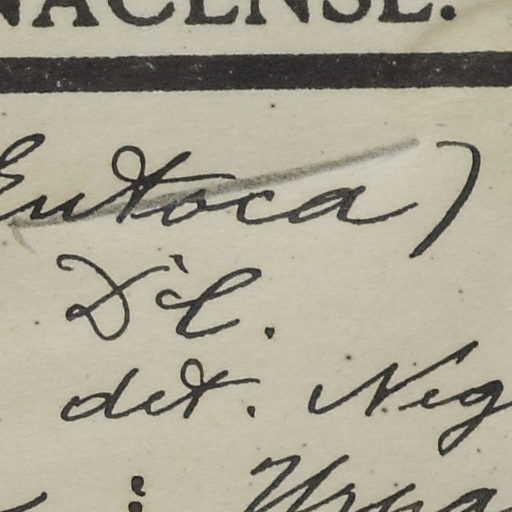 NACENSE.
Eutoca)
D'C.
det. Neg
: Urba